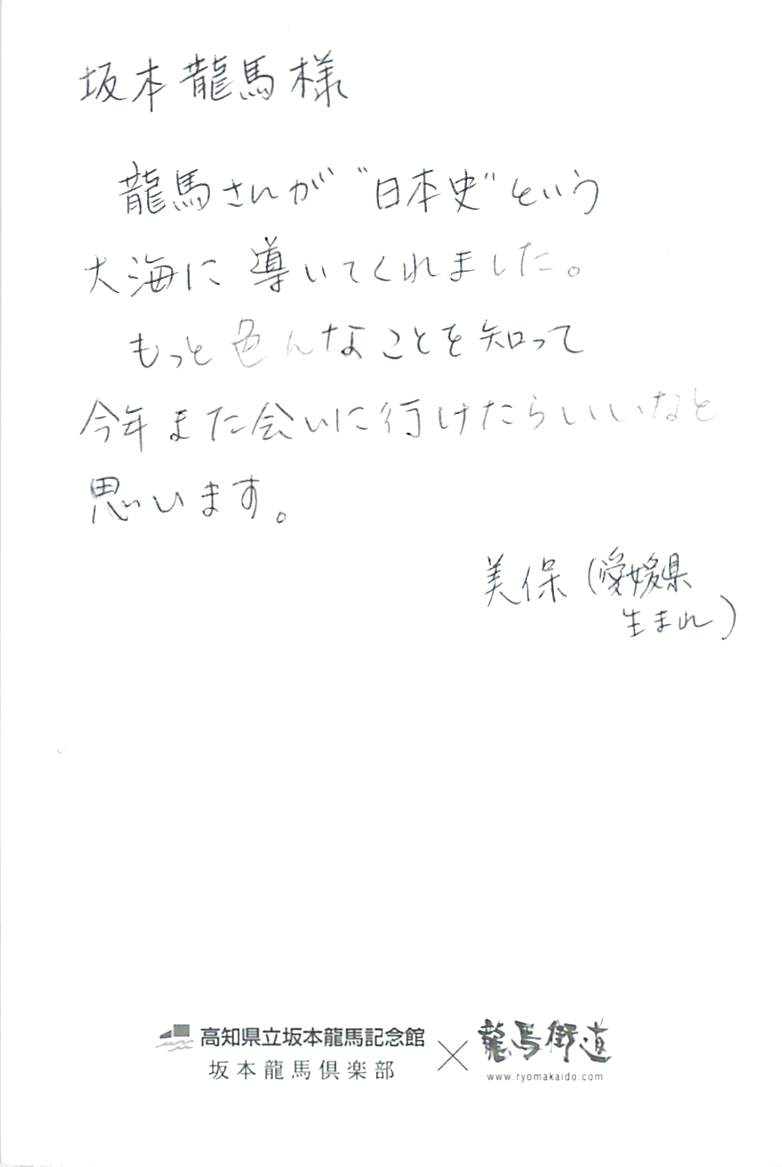 坂本龍馬様
龍馬さんが"日本史"という
大海に導いてくれました。
もっと色んなことを知って
今年また会いに行けたらいいなと
思います。
美保(愛媛県
生まれ)
高知県立坂本龍馬記念館
坂本龍馬倶楽部
×
龍馬街道
www.ryomakaido.com